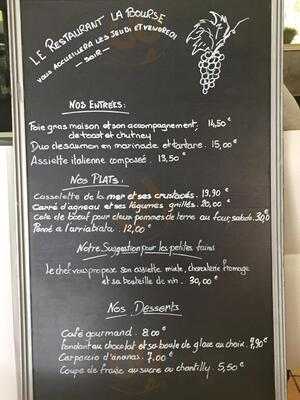 LE RESTAURANT LA BOURSE
VOUS ACCUEILLERA LES JEUDI ET VENDREDI
- SOIR -
NOS ENTREES:
Foie gras maison et son accompagnement, 14,50 €
de toast et chutney
Duo de saumon en marinade et tartare. 15,00 €
Assiette italienne composée. 13,50 €
NOS PLATS.
Cassolette de la mer et ses crustacés. 19,90 €
Carré d'agneau et ses légumes grillés. 20,00 €
Cote de boeuf pour deux pommes de terre au four, salade.
Penné a l'arriabiata. 12,00 €
Notre Suggestion pour les petites faims
Le chef vous propose son assiette mixte, charcuterie fromage
et sa bouteille de vin. 30,00 €
Nos Desserts
Café gourmand. 8.00 €
Fondant au chocolat et sa boule de glace au choix. 7,90 €
Carpaccio d'ananas. 7.00 €
Coupe de fraise au sucre ou chantilly. 5,50 €